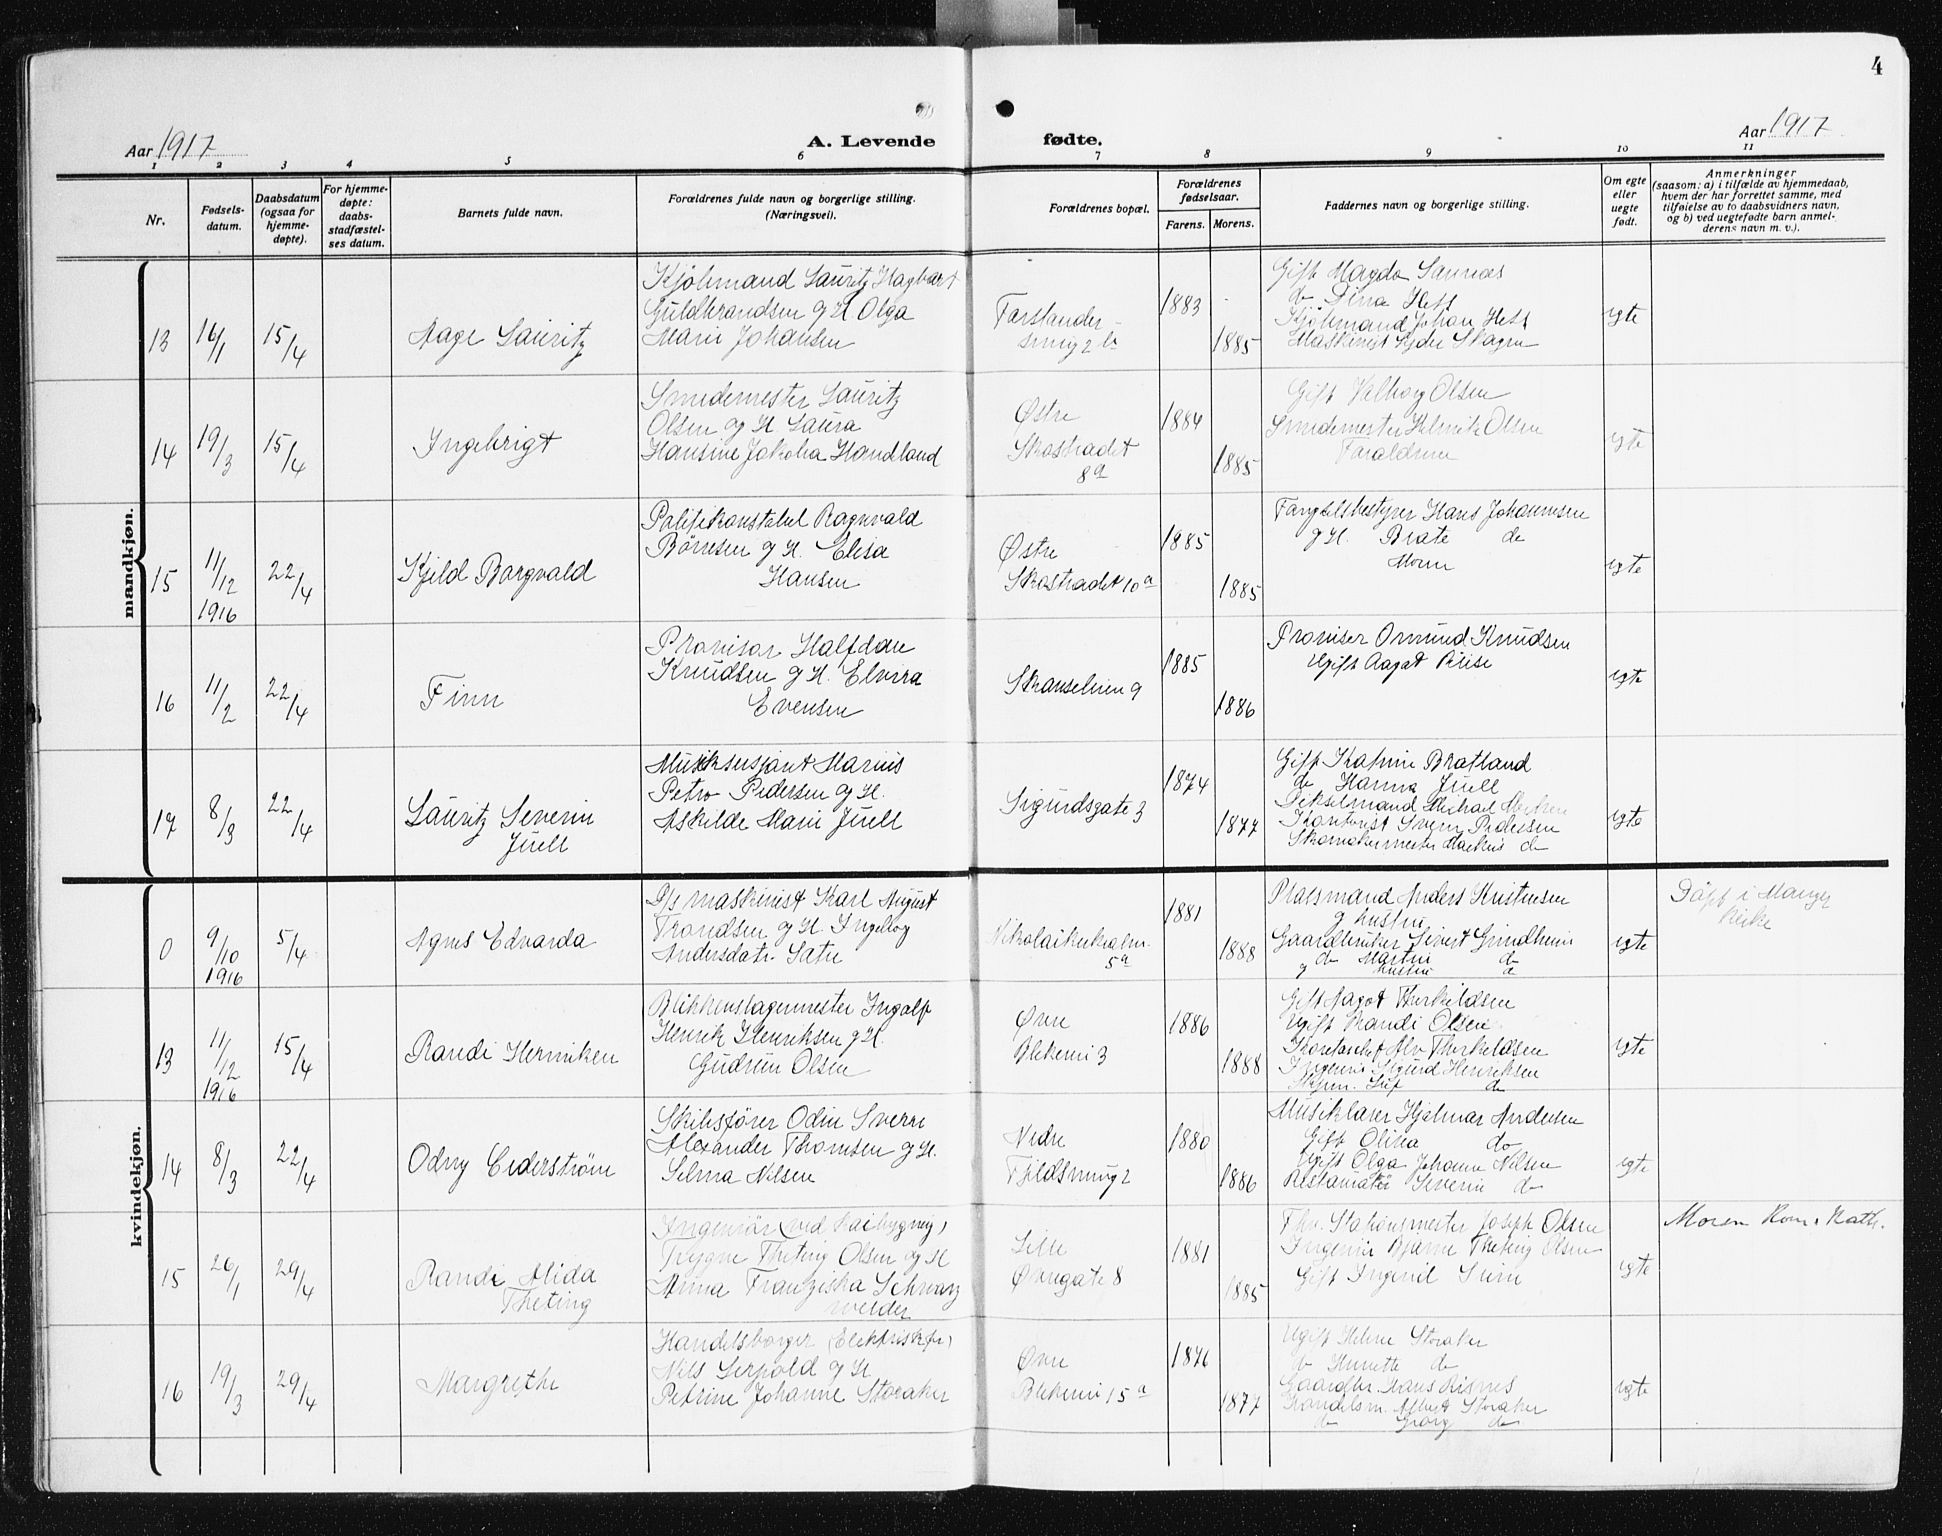 4
Aar 1917
A. Levende fødte.
Aar 1917
1 2 3 4 5 6 7 8 9 10 11
Nr.
Fødsels-
datum.
Daabsdatum
(ogsaa for
hjemme-
døpte).
For hjemme-
døpte:
daabs-
stadfæstel-
ses datum.
Barnets fulde navn.
Forældrenes fulde navn og borgerlige stilling.
(Næringsvei).
Forældrenes bopæl.
Forældrenes
fødselsaar.
Farens. Morens.
Faddernes navn og borgerlige stilling.
Om egte
eller
uegte
født.
Anmerkninger
(saasom: a) i tilfælde av hjemmedaab,
hvem der har forrettet samme, med
tilføielse av to daabsvidners navn,
og b) ved uegtefødte barn anmel-
derens navn m. v.).
mandkjøn.
13
16/1
15/4
Aage Lauritz
Kjølmand Lauritz Hagbart
Guldbrandsen og H. Olga
Marie Johansen
Forstander-
smug 2 b
1883
1885
Gift Magda
do Dina Heft
Kjølmand Johan Heft
Maskinist Peder Skagen
egte
14
19/3
15/4
Ingebrigt
Smedemester Lauritz
Olsen og H Laura
Hansine Jakoba Handeland
Østre
Skostrædet
8a
1884
1885
Gift Valborg Olsen
Smedemester Olsen
Forældrene
egte
15
11/12
1916
22/4
Kjeld Borgvald
Politikonstabel Ragnvald
Børresen og H. Elisa
Hansen
Østre
Skostrædet 10 a
1885
1885
Fængselsbestyrer Hans Johannesen
og H. Brate do
Moren
egte
16
11/2
22/4
Finn
Provisor Halfdan
Knudsen og H. Elvira
Evensen
Skanselien 9
1885
1886
Provisor Omund Knudsen
Ugift Aagot Riise
egte
17
8/3
22/4
Lauritz Severin
Juell
Musiksersjant Marius
Petro Pedersen og H.
Askilde Marie Juell
Sigurdsgate 3
1874
1877
Gift Katrine Bratland
do Hanna Juell
Michael
Kontorist Sverre Pedersen
Skomakermester Markus do
egte
kvindekjøn.
0
9/10
1916
5/4
Agnes Edvarda
D/s maskinist Karl August
Trondsen og H. Ingeborg
Andersdatr. Sætre
Nikolaikirkealm.
5a
1881
1888
Pladsmand Anders Kristensen
og hustru
Gaardbruker Sivert Grindheim
do Martin do
og hustru do
egte
Døpt i Manger
kirke
13
11/12
1916
15/4
Randi Henriksen
Blikkenslagermester Ingolf
Henrik Henriksen og H.
Gudrun Olsen
Øvre
Blekevei 3
1886
1888
Gift Aagot Therkildsen
Ugift Randi Olsen
Kontorchef Alv Therkildsen
Ingeniør Sigurd Henriksen
Leif do
egte
14
8/3
22/4
Odny Cederstrøm
Skibsfører Odin Sverre
Alexander Thomsen og H.
Selma Nilsen
Nedre
Fjeldsmug 2
1880
1886
Musiklærer Hjalmar Andersen
Gift Olisa do
Ugift Olga Johanne Nilsen
Restauratør Severin do
egte
15
26/1
29/4
Randi Alida
Theting
Ingeniør (ved kaibygning)
Trygve Theting Olsen og H
Anna Franziska Schwarz
welder
Lille
Øvregate 8
1881
1885
Fhv. Stationsmester Joseph Olsen
Ingeniør Bjarne Theting Olsen
Gift Ingerid
egte
Moren Rom. Kath.
16
19/3
29/4
Margrethe
Handelsborger (Elektriskfor.)
Nils Serpold og H
Petrine Johanne Storaker
Øvre
Blekevei 15 a
1876
1877
Ugift Helene Storaker
do Henette do
Gaardbr. Hans Risnes
Handelsm. Albert Storaker
do Georg do
egte